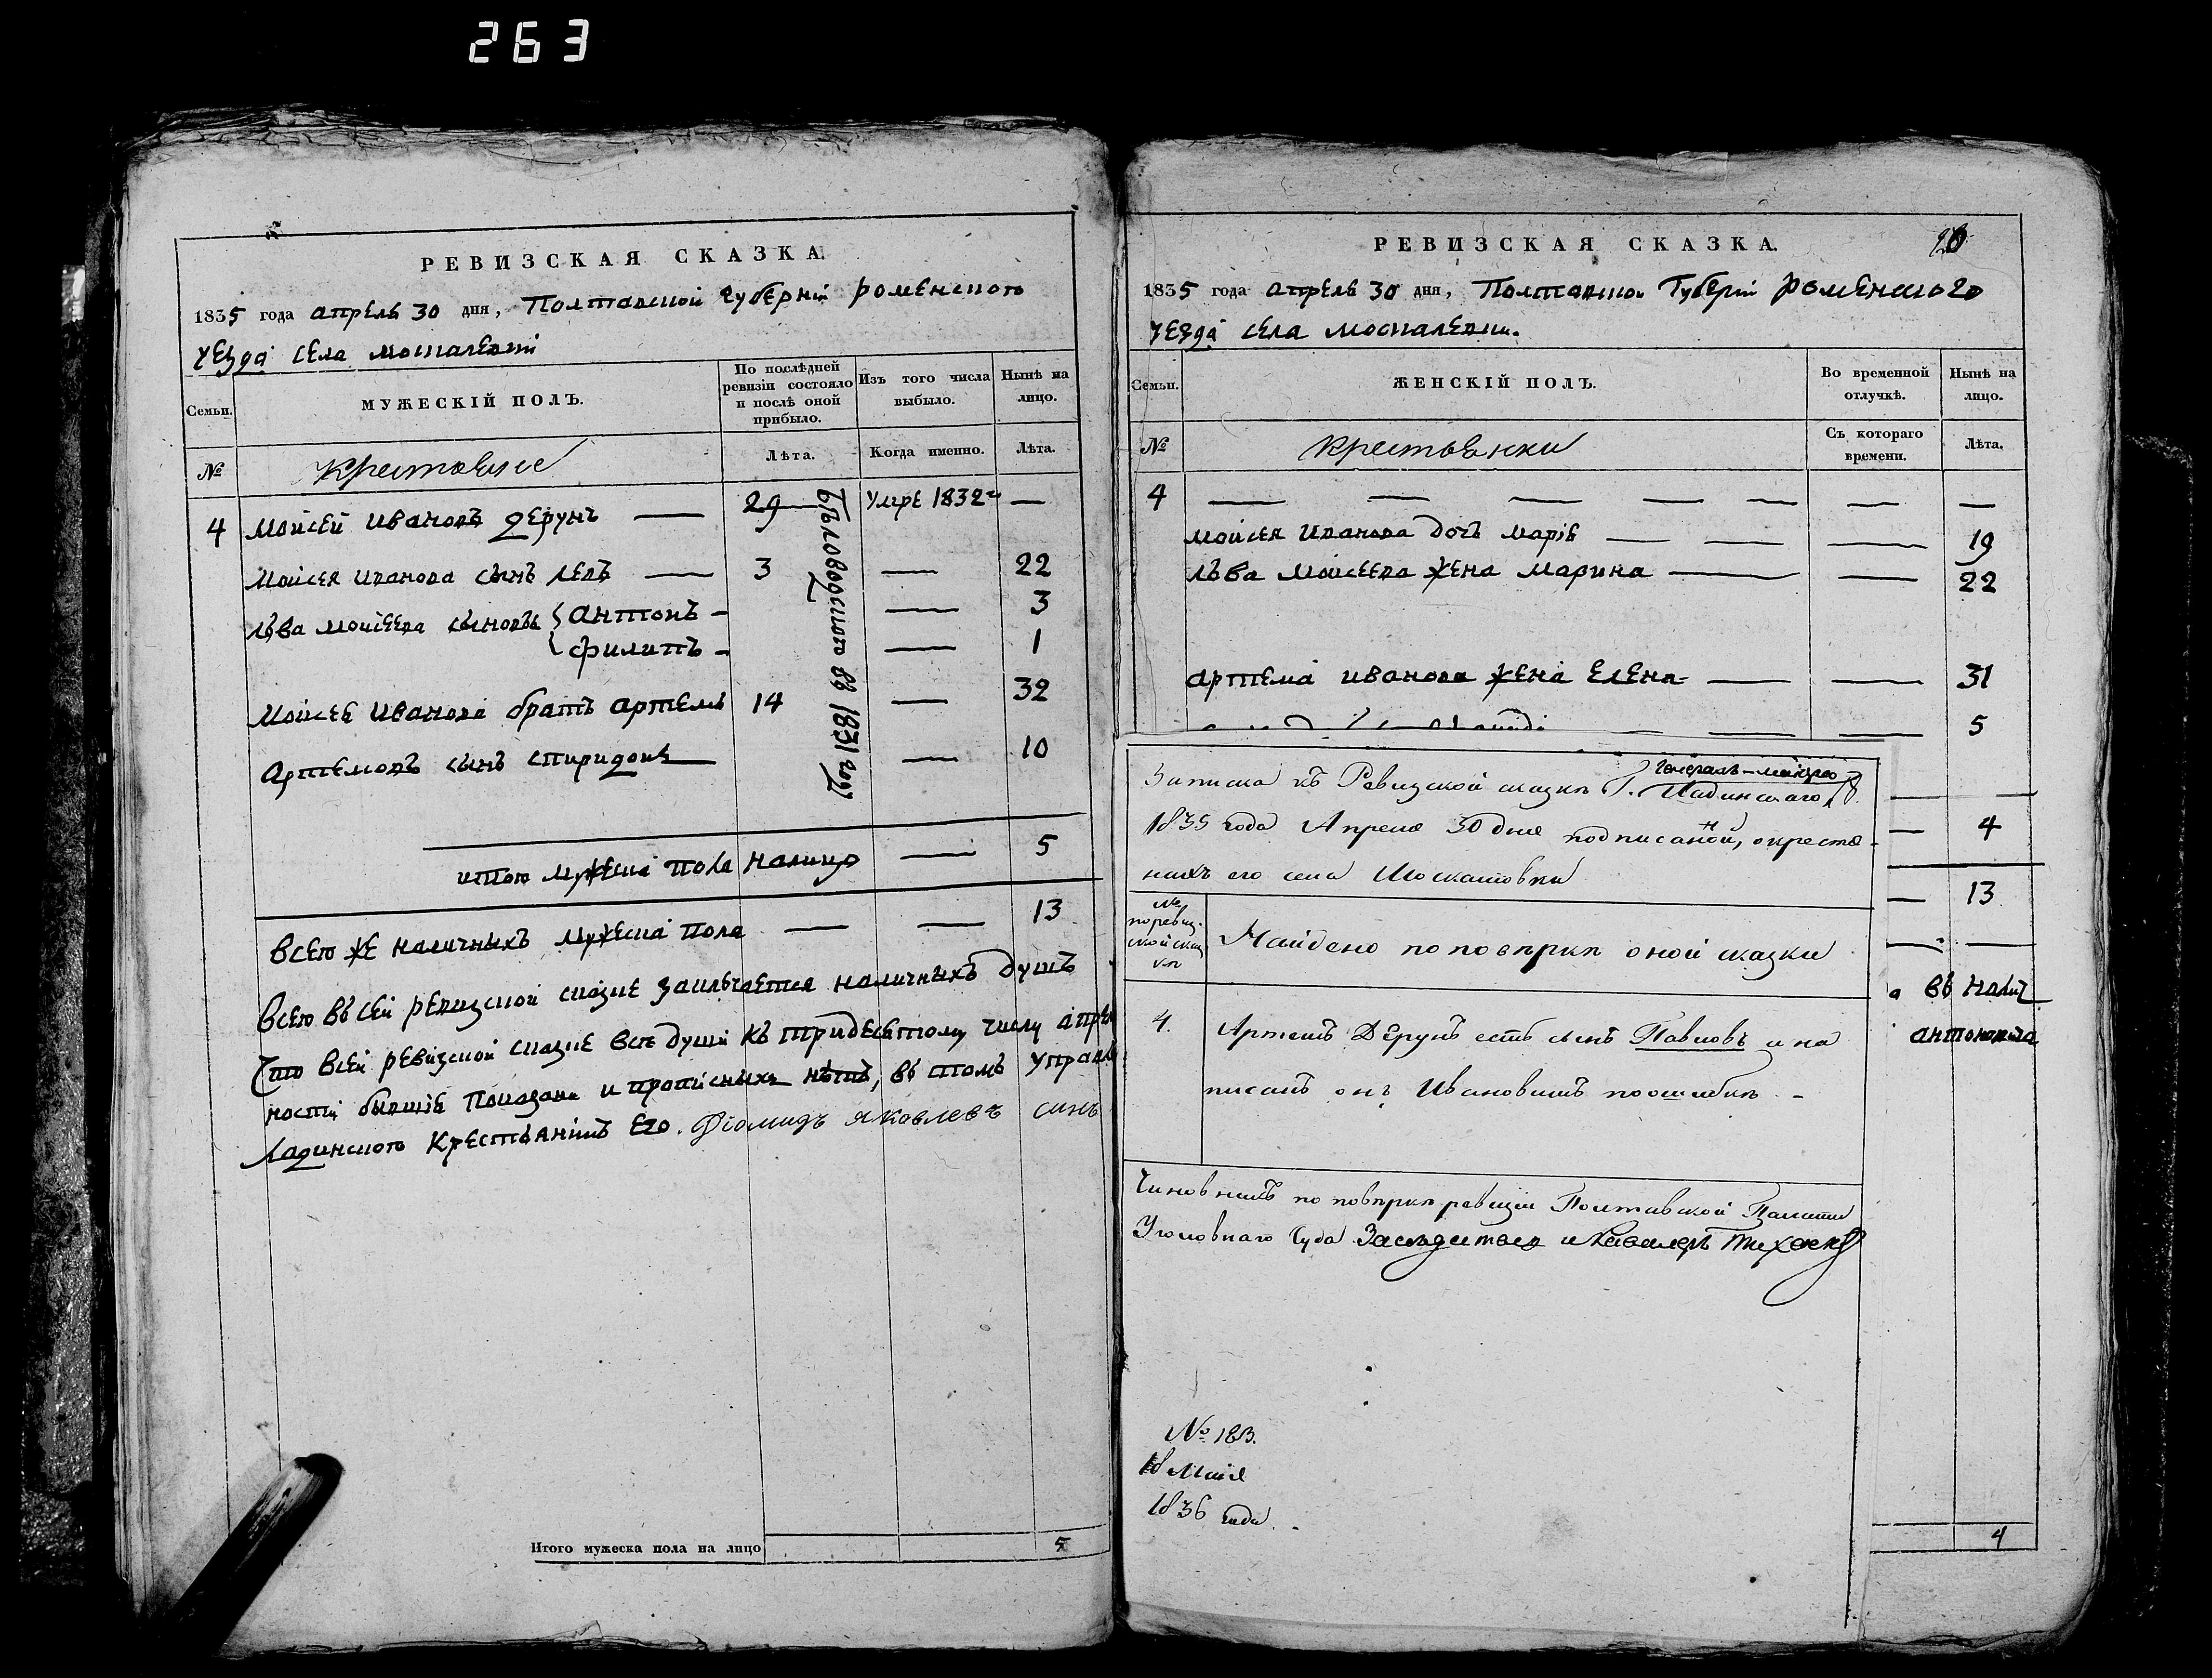 263
РЕВИЗСКАЯ СКАЗКА.
1835 года апрелѣ 30 дня, Полтавской губерніи роменского
уезда села москалевки
Семьи.
МУЖЕСКІЙ ПОЛЪ.
По послѣдней ревизіи состояло и послѣ оной прибыло.
Изъ того числа выбыло.
Нынѣ на лицо.
№
Крестьяне
Лѣта.
Когда именно.
Лѣта.
4 мойсей ивановъ дерунъ 29 умре 1832 —
мойсея иванова сынъ левъ 3 — 22
лъва мойсеева сыновья антонъ — 3
филипъ — 1
мойсея иванова братъ артемъ 14 — 32
артемовъ сынъ спиридонъ — 10
Бѣловодского въ 1831 году
итого мужеска пола налицо — 5
всего же наличныхъ мужеска пола — — 13
всего въ сей ревизской сказке заключается наличныхъ душъ
что всей ревизской сказке все души къ тридесятому числу апре
ности бывшіе показани и прописныхъ нѣтъ, въ томъ управл
Ладинского крестьянинъ его. Діомидъ яковлевъ синъ
Итого мужеска пола на лицо 5
РЕВИЗСКАЯ СКАЗКА.
1835 года апрелѣ 30 дня, Полтавской Губерніи роменского
уезда села москалевки.
Семьи.
ЖЕНСКІЙ ПОЛЪ.
Во временной отлучкѣ.
Нынѣ на лицо.
№
крестьянки
Съ котораго времени.
Лѣта.
4 — — — — — — —
мойсея иванова дочъ марія — — — 19
лъва мойсеева жена марина — — 22
артема иванова жена елена — — 31
— — 5
— 4
— 13
въ налич
антоновича
4
Записка къ Ревизской сказкѣ Г. Генералъ-маіора Ладинскаго
1835 года Апреля 30 дня подписанной, о крестья-
нахъ его села Москалювки
№ по ревиз-
ской сказ-
кѣ
Найдено по повѣркѣ оной сказки
4. Артемъ Дерунъ есть сынъ Павловъ и на
писанъ онъ Ивановымъ по ошибкѣ. -
Чиновникъ по повѣркѣ ревизіи Полтавской Палаты
Уголовнаго Суда Засѣдатель и Кавалеръ
№ 183.
18 Маія
1836 года.